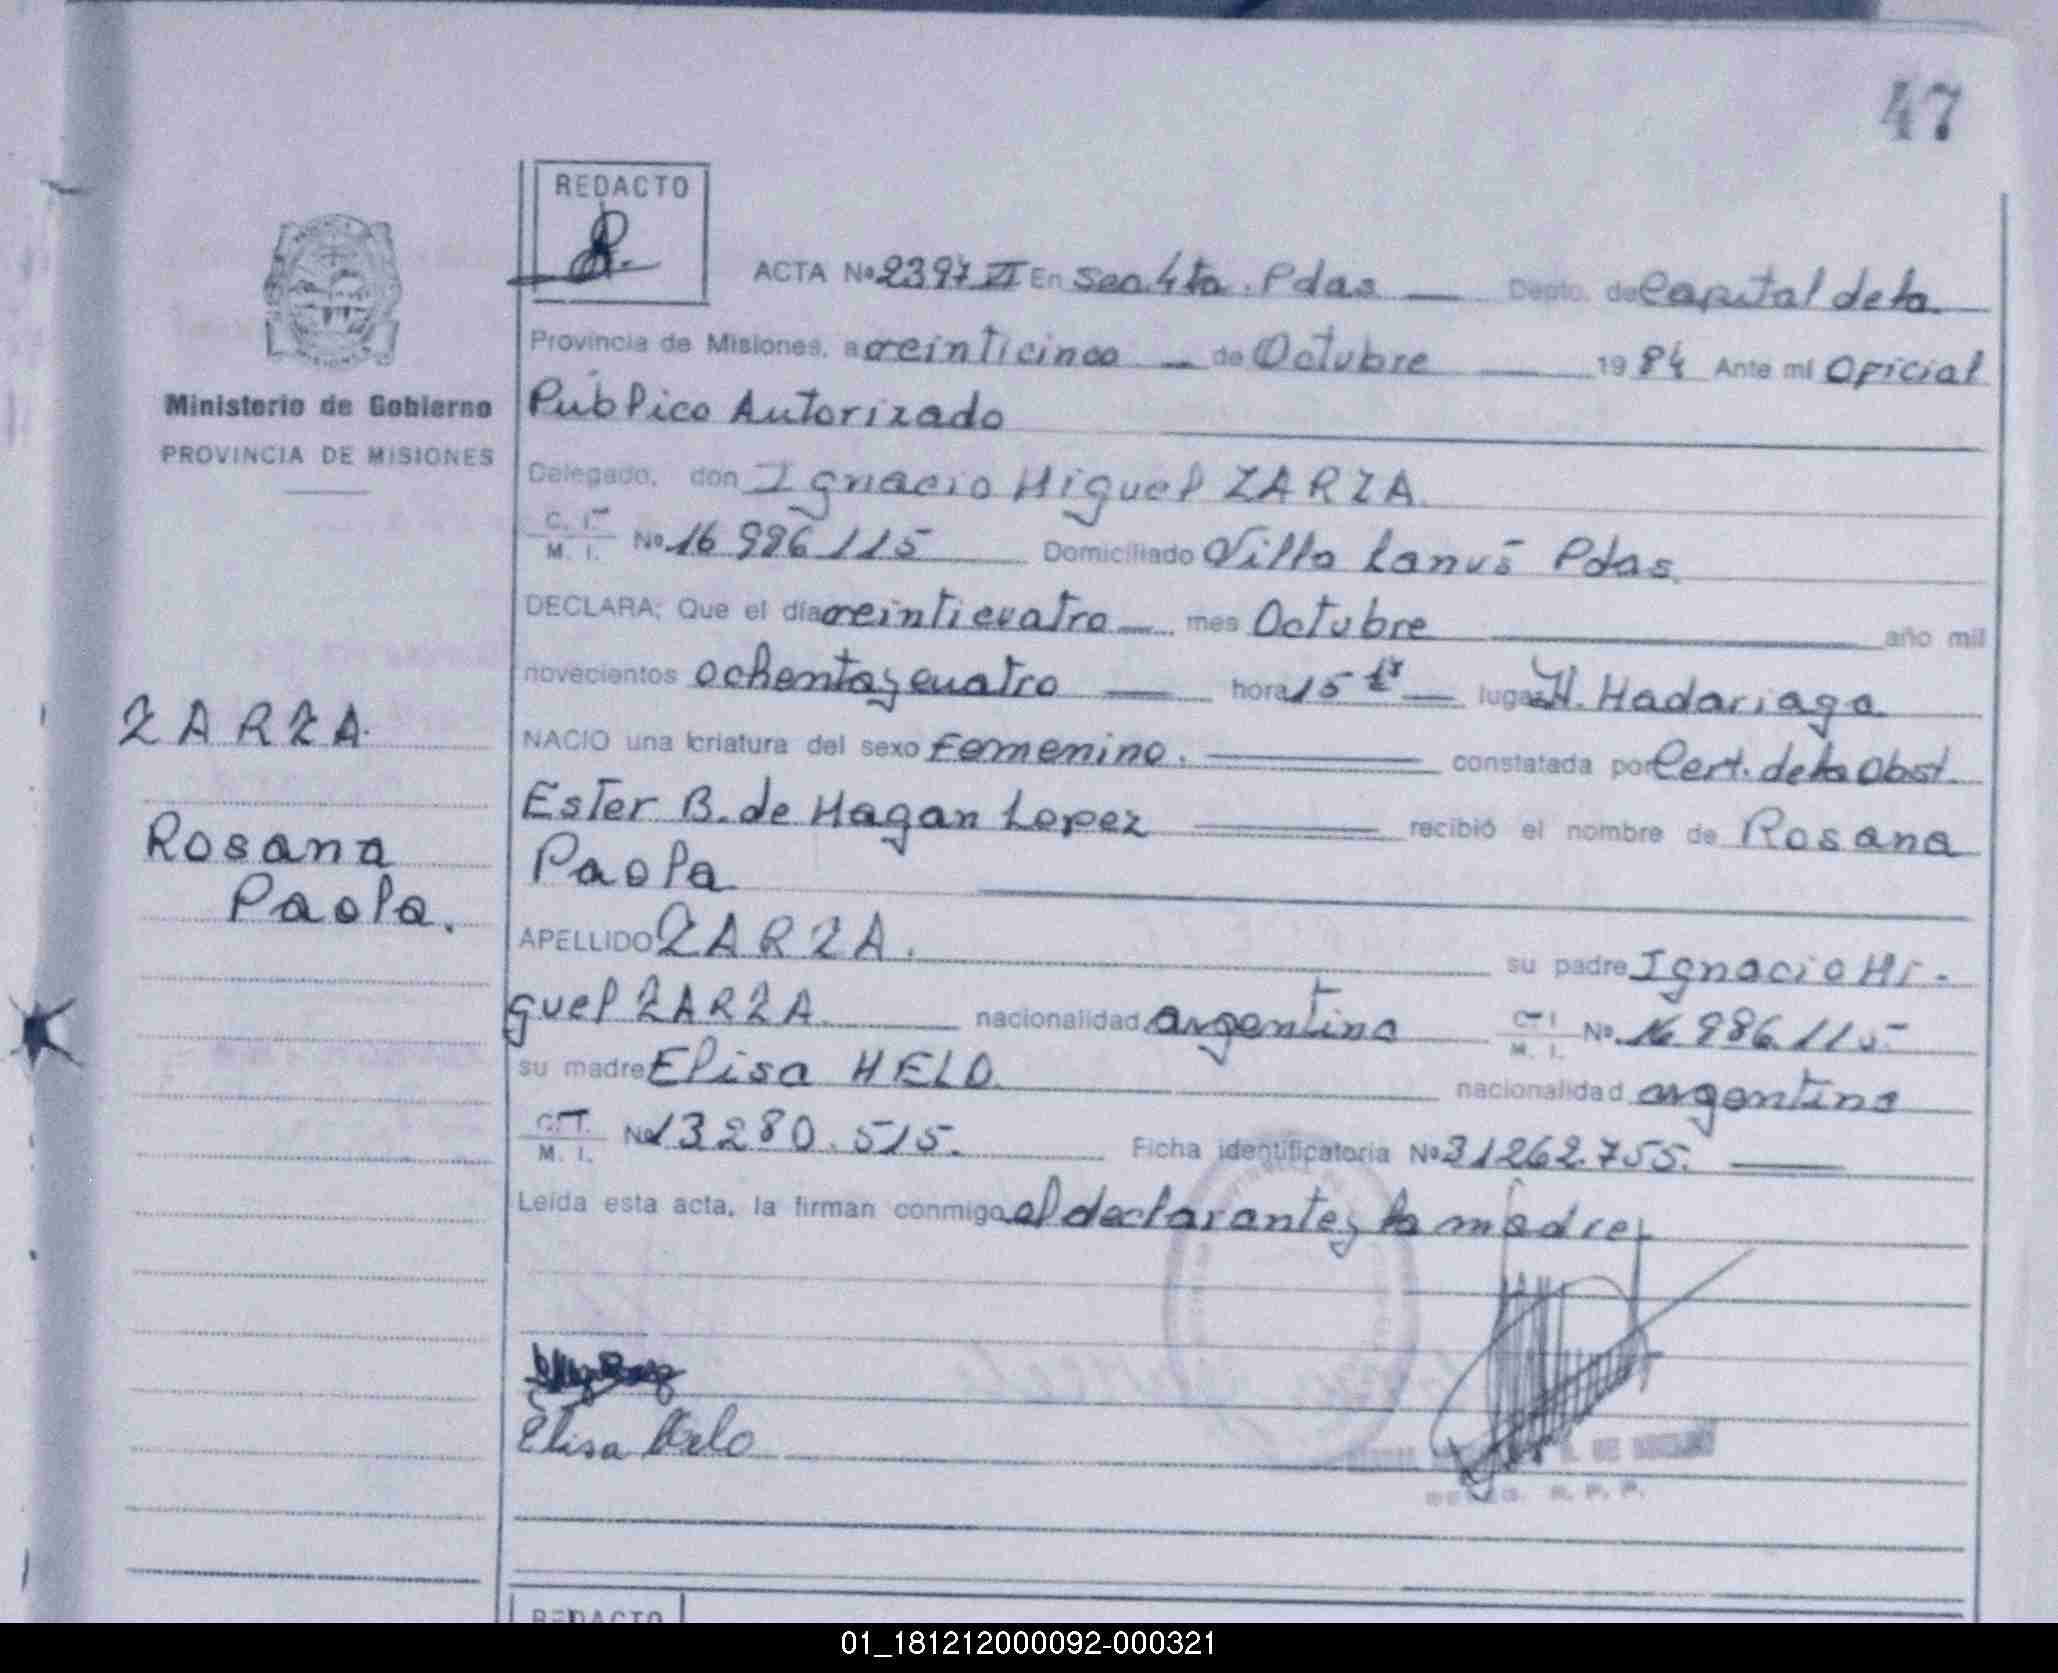 47
REDACTO
ACTA No 2397 VI En Secc 4ta. Pdas — Depto. de Capital de la
Provincia de Misiones, a veinticinco — de Octubre — 19 84 Ante mi Oficial
Público Autorizado
Ministerio de Gobierno
PROVINCIA DE MISIONES
Delegado, don Ignacio Miguel ZARZA
C. I. M. I. No. 16 986 115 Domiciliado Villa Lanús Pdas.
DECLARA; Que el día veinticuatro — mes Octubre — año mil
novecientos ochenta y cuatro — hora 15 — lugar H. Madariaga
NACIO una criatura del sexo Femenino. — constatada por Cert. de la Obst.
Ester B. de Hagan Lopez — recibió el nombre de Rosana
Paola
APELLIDO ZARZA. su padre Ignacio Mi-
guel ZARZA — nacionalidad argentina C. I. M. I. No. 16 986.115
su madre Elisa HELO nacionalidad argentina
C. I. M. I. No 13 280.515. Ficha identificatoria No 31262.755. —
Leída esta acta, la firman conmigo el declarante y la madre
ZARZA.
Rosana
Paola.
Elisa Helo
R. P. P.
REDACTO
01_181212000092-000321